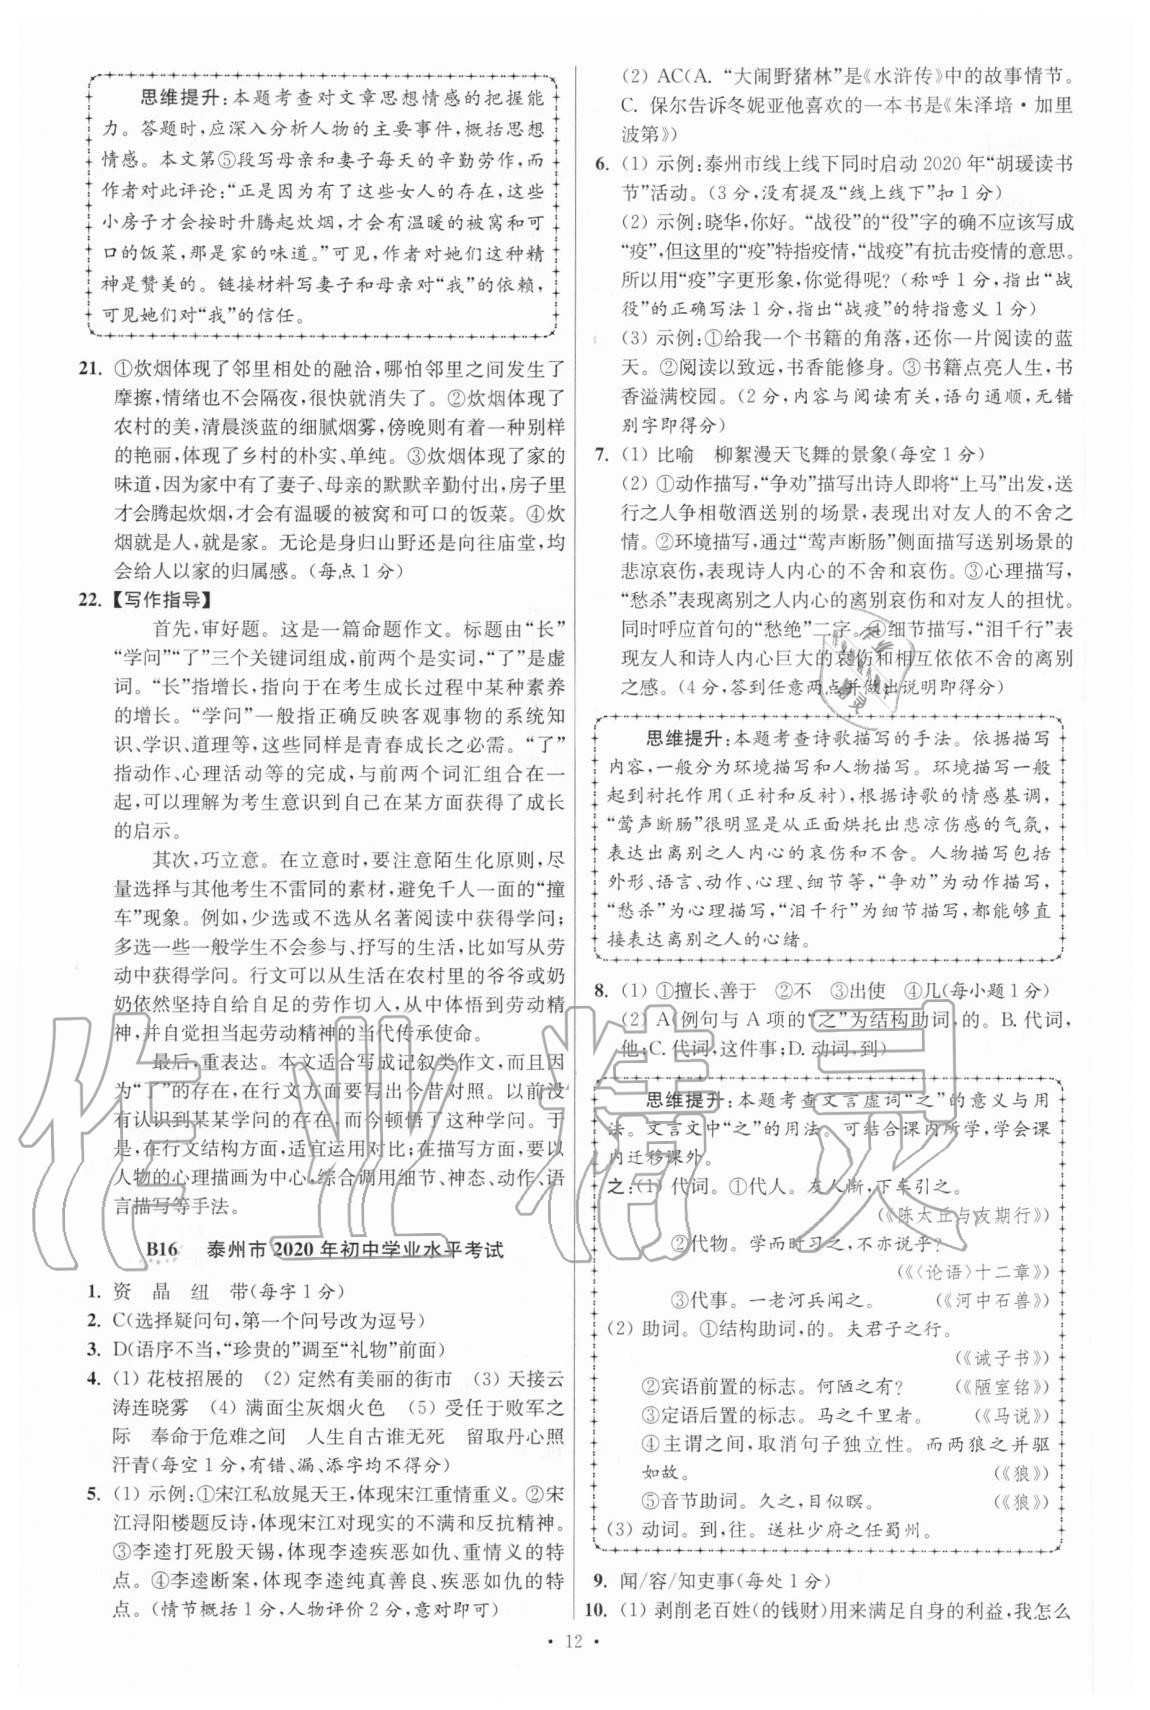 思维提升:本题考查对文章思想情感的把握能
力。答题时,应深入分析人物的主要事件,概括思想
情感。本文第⑤段写母亲和妻子每天的辛勤劳作,而
作者对此评论:“正是因为有了这些女人的存在,这些
小房子才会按时升腾起炊烟,才会有温暖的被窝和可
口的饭菜,那是家的味道。”可见,作者对她们这种精
神是赞美的。链接材料写妻子和母亲对“我”的依赖,
可见她们对“我”的信任。
21. ①炊烟体现了邻里相处的融洽,哪怕邻里之间发生了
摩擦,情绪也不会隔夜,很快就消失了。②炊烟体现了
农村的美,清晨淡蓝的细腻烟雾,傍晚则有着一种别样
的艳丽,体现了乡村的朴实、单纯。③炊烟体现了家的
味道,因为家里有了妻子、母亲的默默辛勤付出,房子里
才会腾起炊烟,才会有温暖的被窝和可口的饭菜。④炊
烟就是人,就是家。无论是身归山野还是向往庙堂,均
会给人以家的归属感。(每点1分)
22.【写作指导】
首先,审好题。这是一篇命题作文。标题由“长”
“学问”“了”三个关键词组成,前两个是实词,“了”是虚
词。“长”指增长,指向于在考生成长过程中某种素养
的增长。“学问”一般指正确反映客观事物的系统知
识、学识、道理等,这些同样是青春成长之必需。“了”
指动作、心理活动等的完成,与前两个词汇组合在一
起,可以理解为考生意识到自己在某方面获得了成长
的启示。
其次,巧立意。在立意时,要注意陌生化原则,尽
量选择与其他考生不雷同的素材,避免千人一面的“撞
车”现象。例如,少选或不选从名著阅读中获得学问;
多选一些一般学生不会参与、抒写的生活,比如写从劳
动中获得学问。行文可以从生活在农村里的爷爷或奶
奶依然坚持自给自足的劳作切入,从中体悟到劳动精
神,并自觉担当起劳动精神的当代传承使命。
最后,重表达。本文适合写成记叙类作文,而且因
为“了”的存在,在行文方面要写出今昔对比。以前没
有认识到某某学问的存在,而今顿悟了这种学问。于
是,在行文结构方面,适宜运用对比;在描写方面,要以
人物的心理描画为中心,综合调用细节、神态、动作、语
言描写等手法。
B16 泰州市2020年初中学业水平考试
1. 资 晶 纽 带(每字1分)
2. C(选择疑问句,第一个问号改为逗号)
3. D(语序不当,“珍贵的”调至“礼物”前面)
4. (1) 花枝招展的 (2) 定然有美丽的街市 (3) 天接云
涛连晓雾 (4) 满面尘灰烟火色 (5) 受任于败军之
际 奉命于危难之间 人生自古谁无死 留取丹心照
汗青(每空1分,有错、漏、添字均不得分)
5. (1) 示例:①宋江私放晁天王,体现宋江重情重义。②宋
江浔阳楼题反诗,体现宋江对现实的不满和反抗精神。
③李逵打死殷天锡,体现李逵疾恶如仇、重情义的特
点。④李逵断案,体现李逵纯真善良、疾恶如仇的特
点。(情节概括1分,人物评价2分,意对即可)
(2) AC(A. “大闹野猪林”是《水浒传》中的故事情节。
C. 保尔告诉冬妮亚他喜欢的一本书是《朱泽培·加里
波第》)
6. (1) 示例:泰州市线上线下同时启动2020年“胡瑗读书
节”活动。(3分,没有提及“线上线下”扣1分)
(2) 示例:晓华,你好。“战役”的“役”字的确不应该写成
“疫”,但这里的“疫”特指疫情,“战疫”有抗击疫情的意思。
所以用“疫”字更形象,你觉得呢?(称呼1分,指出“战
役”的正确写法1分,指出“战疫”的特指意义1分)
(3) 示例:①给我一个书籍的角落,还你一片阅读的蓝
天。②阅读以致远,书香能修身。③书籍点亮人生,书
香溢满校园。(2分,内容与阅读有关,语句通顺,无错
别字即得分)
7. (1) 比喻 柳絮漫天飞舞的景象(每空1分)
(2) ①动作描写,“争劝”描写出诗人即将“上马”出发,送
行之人争相敬酒送别的场景,表现出对友人的不舍之
情。②环境描写,通过“莺声断肠”侧面描写送别场景的
悲凉哀伤,表现诗人内心的不舍和哀伤。③心理描写,
“愁杀”表现离别之人内心的离别哀伤和对友人的担忧。
同时呼应首句的“愁绝”二字。④细节描写,“泪千行”表
现友人和诗人内心巨大的哀伤和相互依依不舍的离别
之感。(4分,答到任意两点并做出说明即得分)
思维提升:本题考查诗歌描写的手法。依据描写
内容,一般分为环境描写和人物描写。环境描写一般
起到衬托作用(正衬和反衬),根据诗歌的情感基调,
“莺声断肠”很明显是从正面烘托出悲凉伤感的气氛,
表达出离别之人内心的哀伤和不舍。人物描写包括
外形、语言、动作、心理、细节等,“争劝”为动作描写,
“愁杀”为心理描写,“泪千行”为细节描写,都能够直
接表达离别之人的心绪。
8. (1) ①擅长、善于 ②不 ③出使 ④几(每小题1分)
(2) A(例句与A项的“之”为结构助词,的。B. 代词,
他;C. 代词,这件事;D. 动词,到)
思维提升:本题考查文言虚词“之”的意义与用
法。文言文中“之”的用法。可结合课内所学,学会课
内迁移课外。
之:(1) 代词。①代人。友人惭,下车引之。
(《陈太丘与友期行》)
②代物。学而时习之,不亦说乎?
(《〈论语〉十二章》)
③代事。一老河兵闻之。 (《河中石兽》)
(2) 助词。①结构助词,的。夫君子之行。
(《诫子书》)
②宾语前置的标志。何陋之有? (《陋室铭》)
③定语后置的标志。马之千里者。 (《马说》)
④主谓之间,取消句子独立性。而两狼之并驱
如故。 (《狼》)
⑤音节助词。久之,目似瞑。 (《狼》)
(3) 动词。到,往。送杜少府之任蜀州。
9. 闻/容/知吏事(每处1分)
10. (1) 剥削老百姓(的钱财)用来满足自身的利益,我怎么
· 12 ·
作业精灵